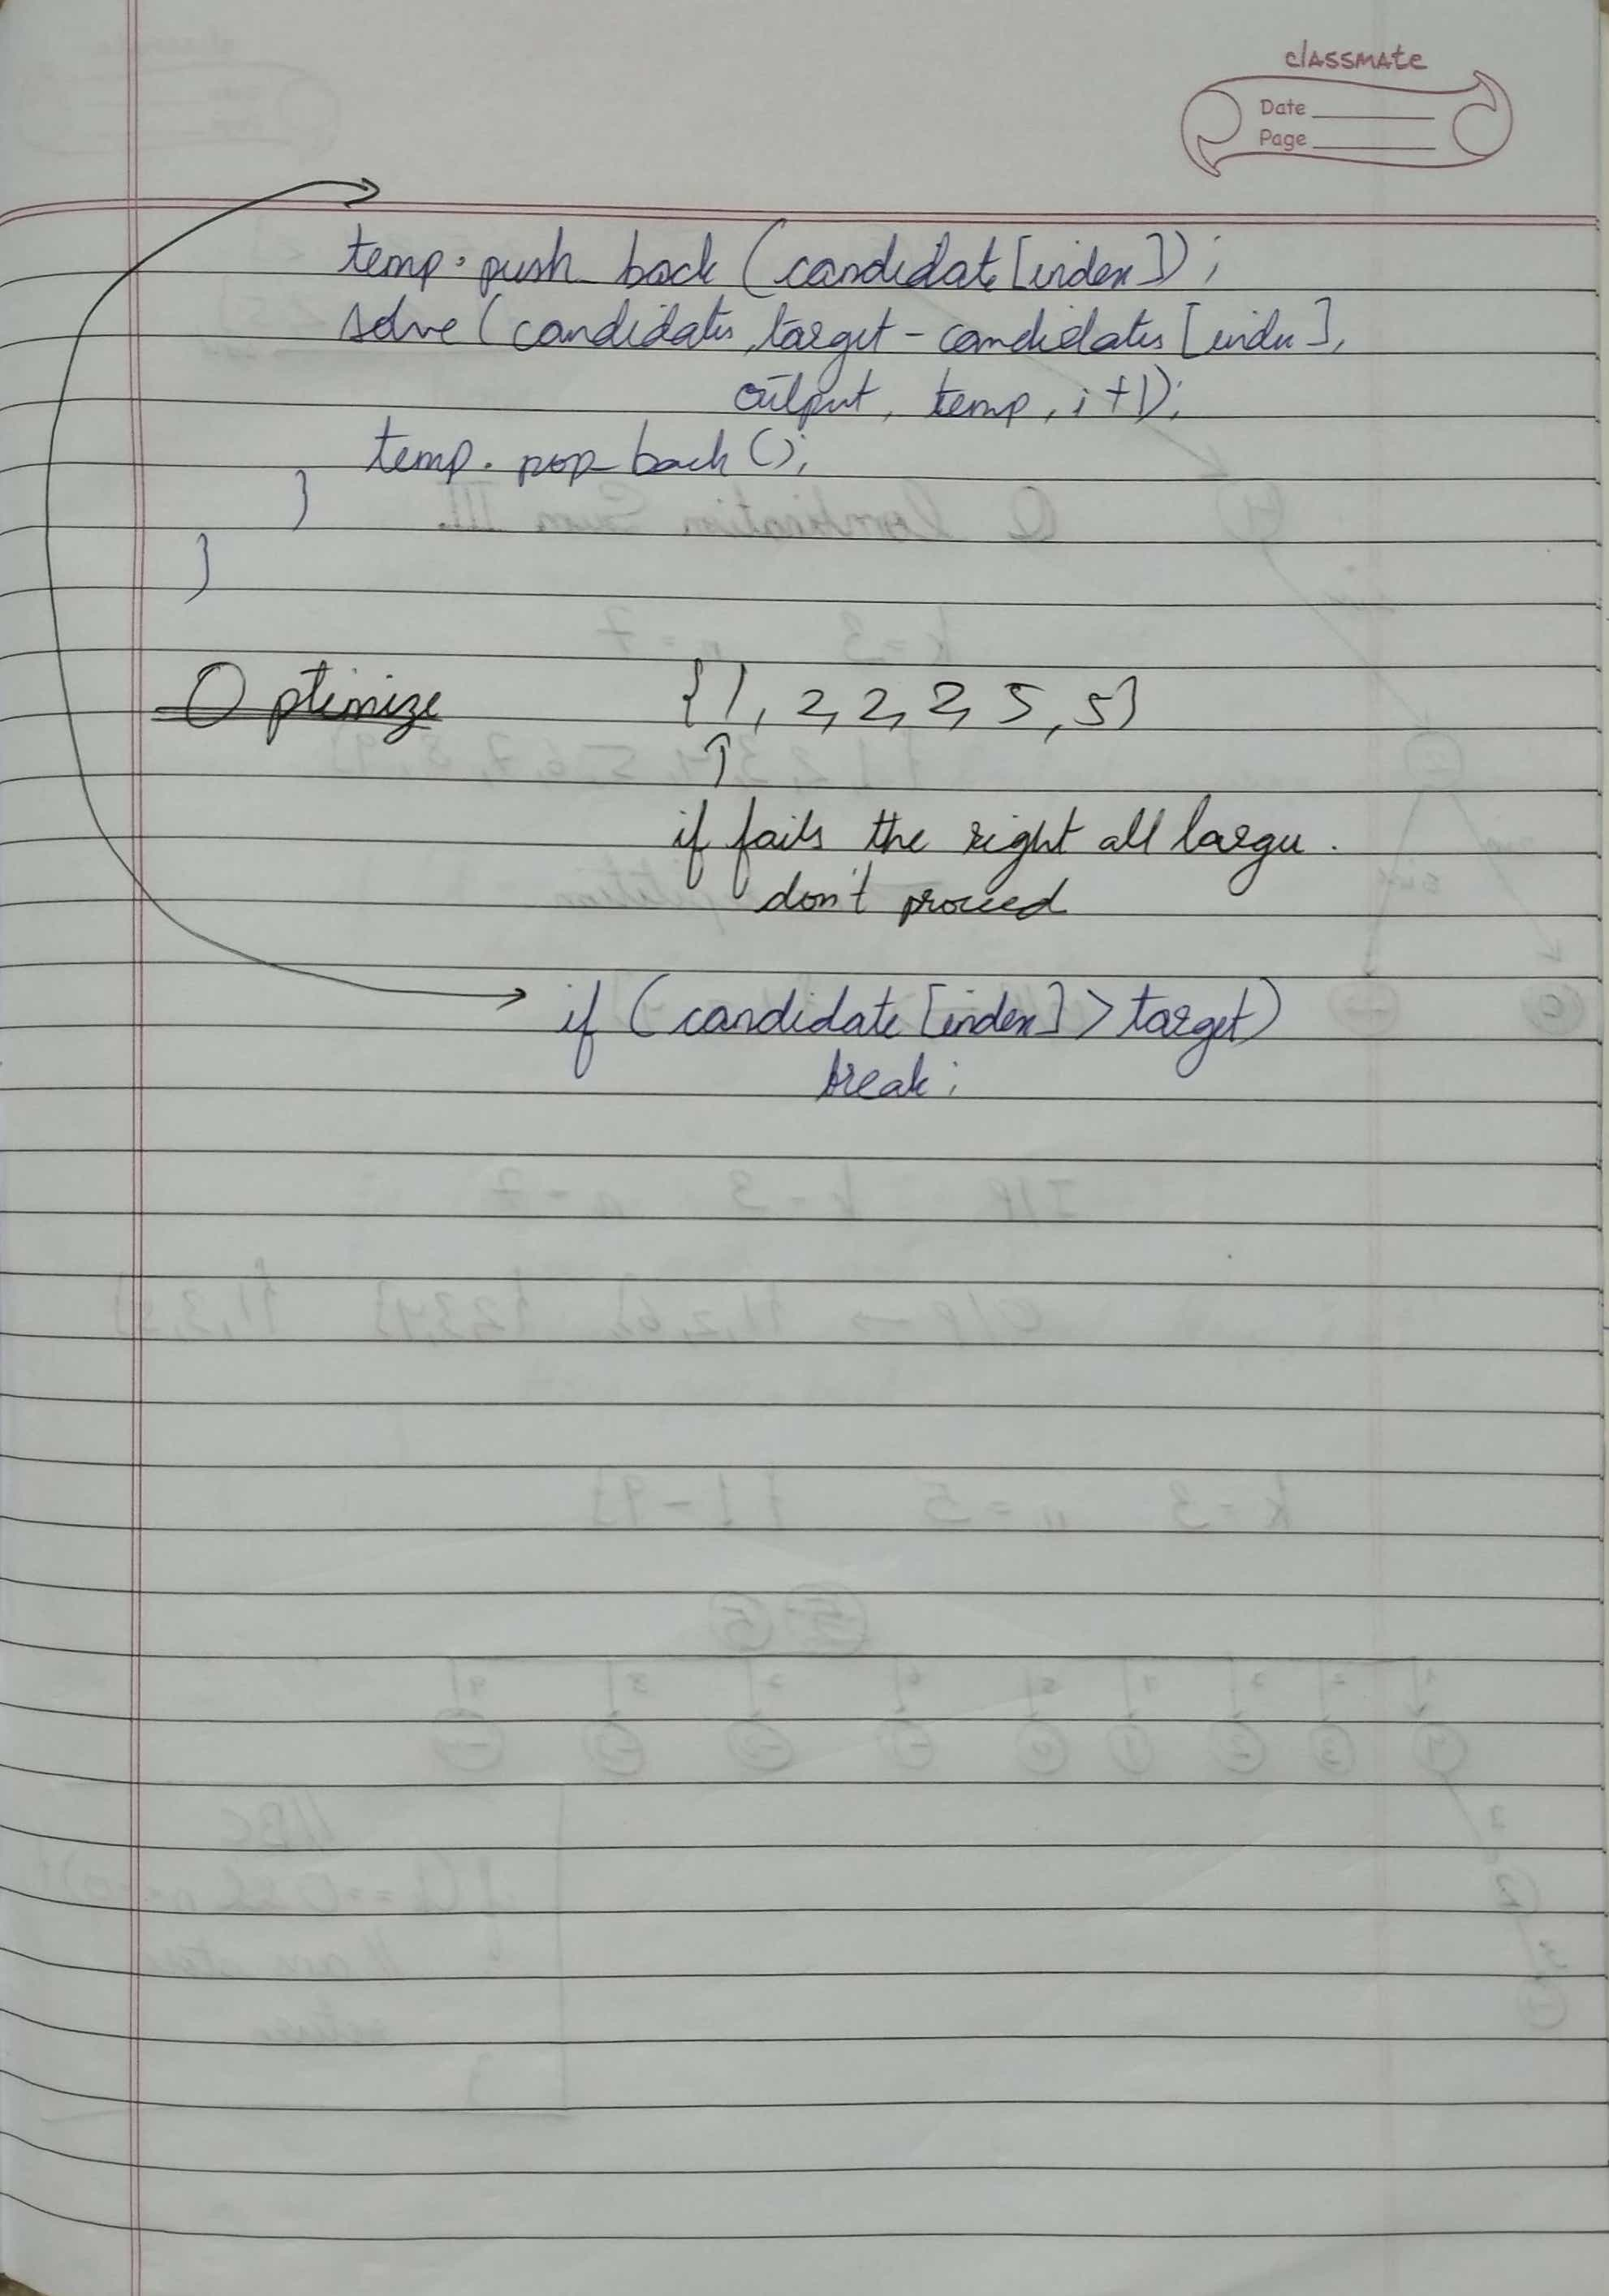 classmate
Date
Page
temp.push_back (candidate[index]);
solve (candidates, target - candidates [index],
output, temp, i+1);
temp.pop_back();
}
}
Optimize {1, 2, 2, 2, 5, 5}
↑
if fails the right all larger.
don't proceed
if (candidate [index] > target)
break;